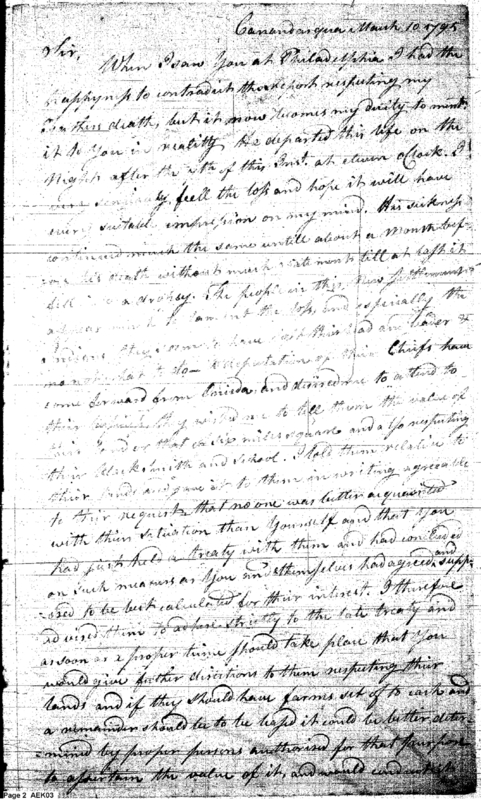 Canandarqua March 10. 1795
Sir,
When I saw You at Philadelphia I had the
happyness to contradict the Report respecting my
Fathers death, but it now becomes my duity to
it to You in reallity He departed this life on the
Night after the of this Inst. at eleven oClock. I
feell the loss and hope it will have
every suitable impression on my mind. His sickness
continued much the same untill about a Month bef-
ore his death without much till at last it
fell into a dropsey. The people in this New Settlement
to lament the loss, and especially the
Indians they seem to have lost their head and leader &
what to do a deputation of their Chiefs have
come forward from Oneida and desired me to attend to
their wished me to tell them the value of
their Lands that on six miles square and also respecting
their Blacksmith and School. I told them relative to
their Lands and gave it to them in writing agreeable
to their request that no one was better acquainted
with their situation than Yourself and that You
had just held a treaty with them and had concluded
on such measures as You and themselves had agreed, and supp-
osed to be best calculated for their interest. I therefore
advised them to adhere strictly to the late treaty and
as soon as a proper time should take place that You
would give further directions to them respecting their
lands and if they should have farms set of to each and
a remainder should be to be leased it could be better deter-
mined by proper persons authorised for that purpose
to assertain the value of it, and would
Page 2 AEK03